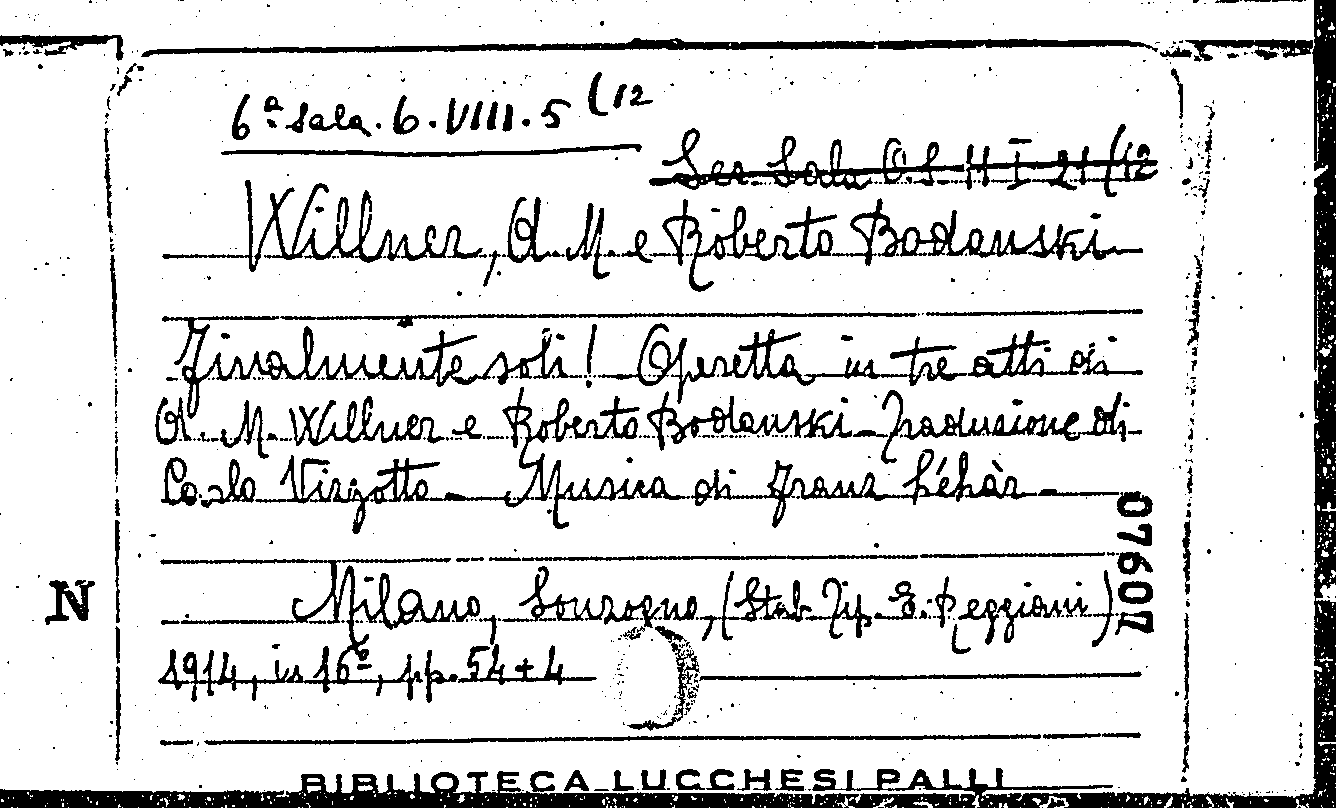 6ª Sala. 6. VIII. 5 (12
Ser. Sala O.S. H I 21 (12
Willner, A. M. e Roberto Bodanski
Finalmente soli! Operetta in tre atti di
A. M. Willner e Roberto Bodanski - Traduzione di
Carlo Vizzotto - Musica di Franz Léhàr -
Milano, Sonzogno, (Stab. Tip. E. Reggiani)
1914, in 16º, pp. 54 + 4
07607
N
BIBLIOTECA LUCCHESI PALLI